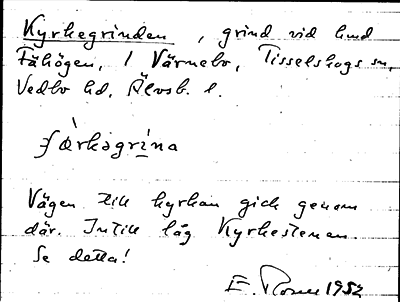 Kyrkegrinden, grind vid hmd
Fähögen, / Värnebo, Tisselskogs sn,
Vedbo hd, Älvsb. l.
Vägen till kyrkan gick genom
där. Intill låg Kyrkestenen.
Se detta!
E. 1952